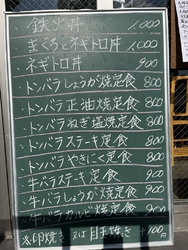 ・鉄火丼 1,000
・まぐろとネギトロ丼 1,000
・ネギトロ丼 900
・トンバラしょうが焼定食 800
・トンバラ正油焼定食 800
・トンバラねぎ塩焼定食 800
・トンバラステーキ定食 800
・トンバラやきにく定食 800
・牛バラステーキ定食 900
・牛バラしょうが焼定食 900
・牛バラカルビ焼定食 900
※印焼き 目玉焼き +100円